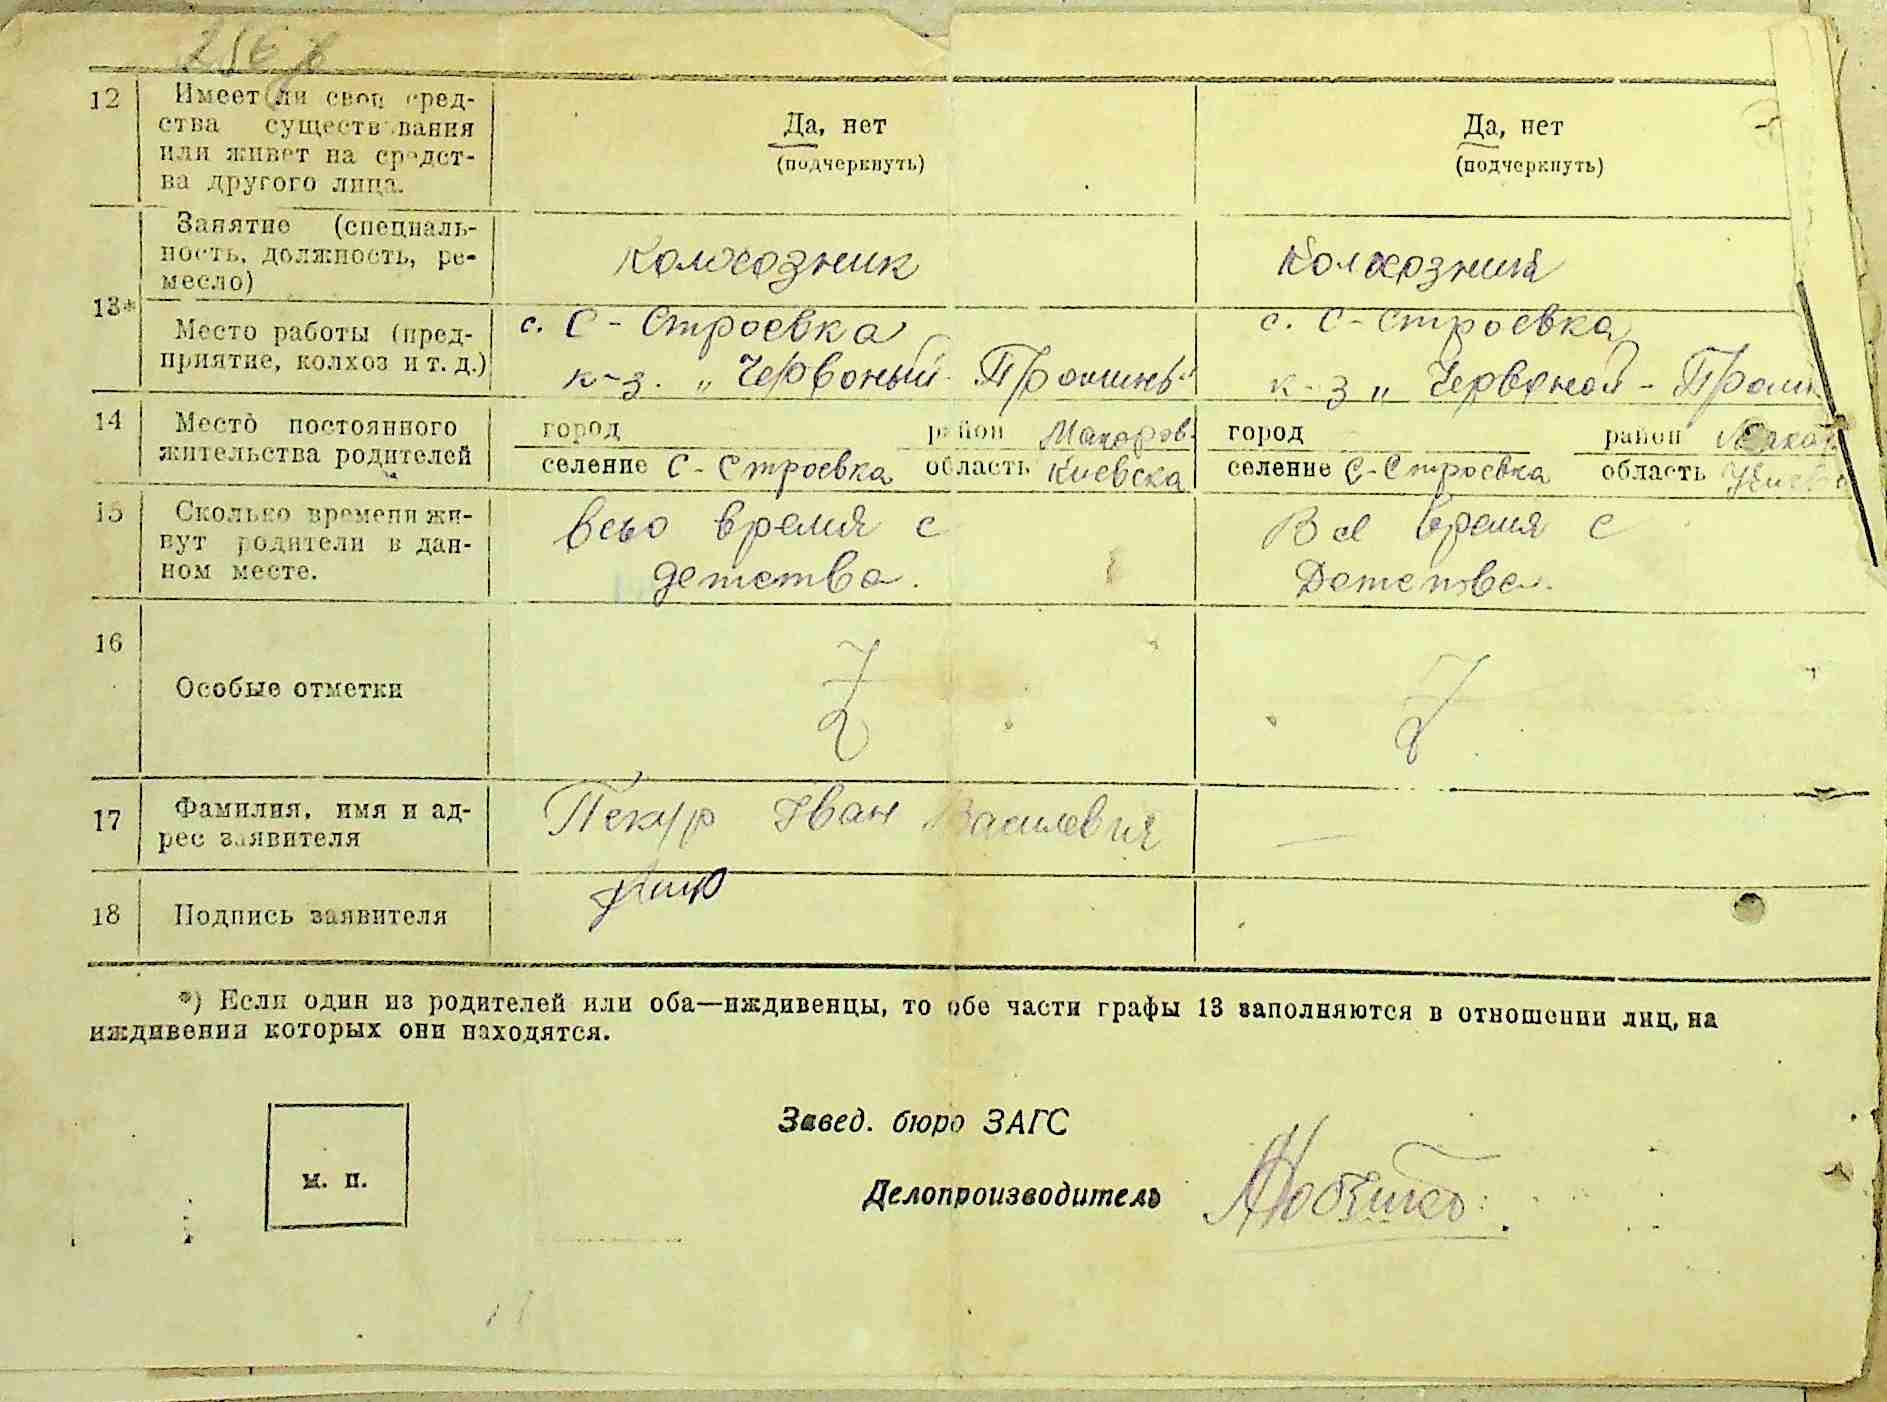 12
Имеет ли свои сред-
ства существования
или живет на средст-
ва другого лица.
Да, нет
(подчеркнуть)
Да, нет
(подчеркнуть)
13*
Занятие (специаль-
ность, должность, ре-
месло)
Колхозник
Колхозник
Место работы (пред-
приятие, колхоз и т. д.)
с. С-Строевка
к-з. „Червоный Проминь"
с. С-Строевка
к-з „Червоной-
14
Место постоянного
жительства родителей
город
район Макаров.
селение С-Строевка область Киевска
город
район
селение С-Строевка область
15
Сколько времени жи-
вут родители в дан-
ном месте.
всьо время с
детства.
Все время с
Детства.
16
Особые отметки
Z
Z
17
Фамилия, имя и ад-
рес заявителя
Пекур Иван Василевич
—
18
Подпись заявителя
*) Если один из родителей или оба—иждивенцы, то обе части графы 13 заполняются в отношении лиц, на
иждивении которых они находятся.
м. п.
Завед. бюро ЗАГС
Делопроизводитель